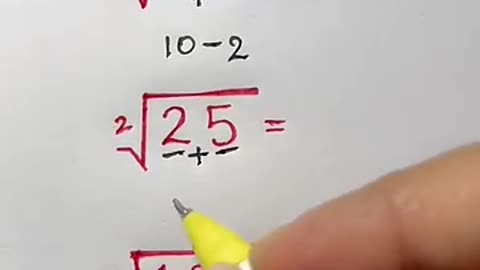 10-2
²√25 =
+